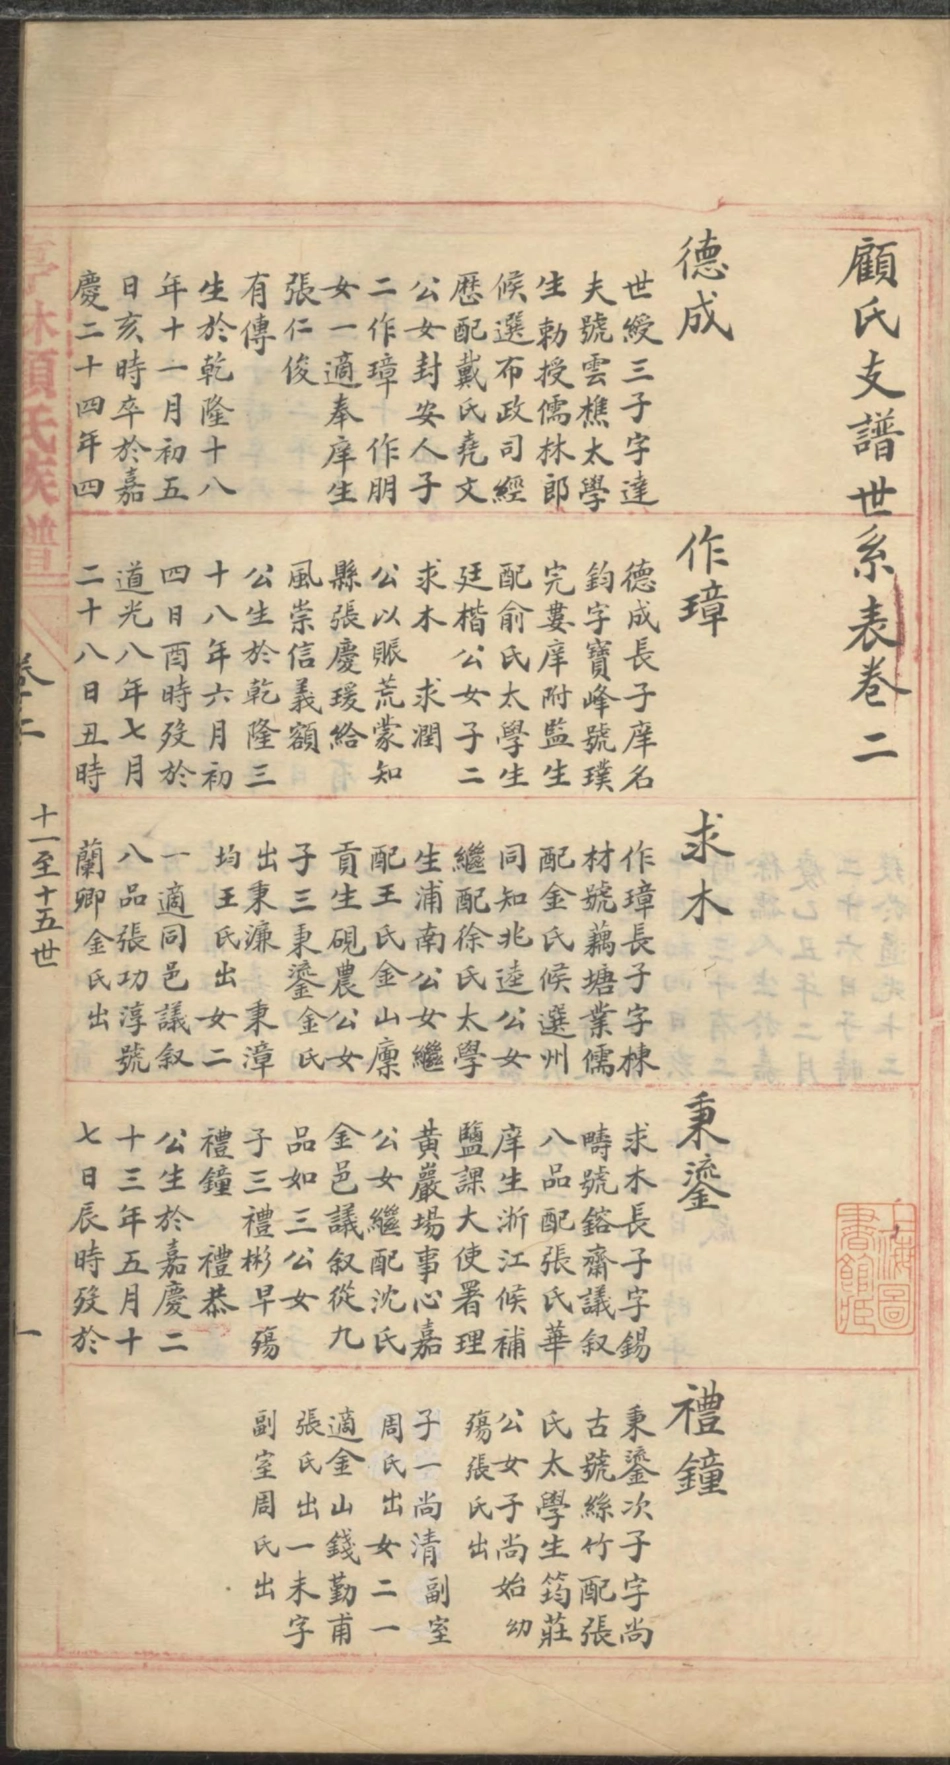 顧氏支譜世系表卷二
德成
世綬三子字達
夫號雲樵太學
生勅授儒林郎
候選布政司經
歷配戴氏堯文
公女封安人子
二作璋 作朋
女一適奉庠生
張仁俊
有傳
生於乾隆十八
年十一月初五
日亥時卒於嘉
慶二十四年四
作璋
德成長子庠名
鈞字寶峰號璞
完婁庠附監生
配俞氏太學生
廷楷公女子二
求木 求潤
公以賑荒蒙知
縣張慶瑗給
風崇信義額
公生於乾隆三
十八年六月初
四日酉時歿於
道光八年七月
二十八日丑時
求木
作璋長子字棟
材號藕塘業儒
配金氏候選州
同知兆逵公女
繼配徐氏太學
生浦南公女繼
配王氏金山廩
貢生硯農公女
子三秉鎏金氏
出秉濂 秉漳
均王氏出女二
一適同邑議叙
八品張功淳號
蘭卿金氏出
秉鎏
求木長子字錫
疇號鎔齋議叙
八品配張氏華
庠生浙江候補
鹽課大使署理
黃巖場事心嘉
公女繼配沈氏
金邑議叙從九
品如三公女
子三禮彬早殤
禮鐘 禮恭
公生於嘉慶二
十三年五月十
七日辰時歿於
禮鐘
秉鎏次子字尚
古號絲竹配張
氏太學生筠莊
公女子尚始幼
殤張氏出
子一尚清副室
周氏出女二一
適金山錢勤甫
張氏出一未字
副室周氏出
亭林顧氏族譜
卷二
十一至十五世
一
上海圖
書館藏